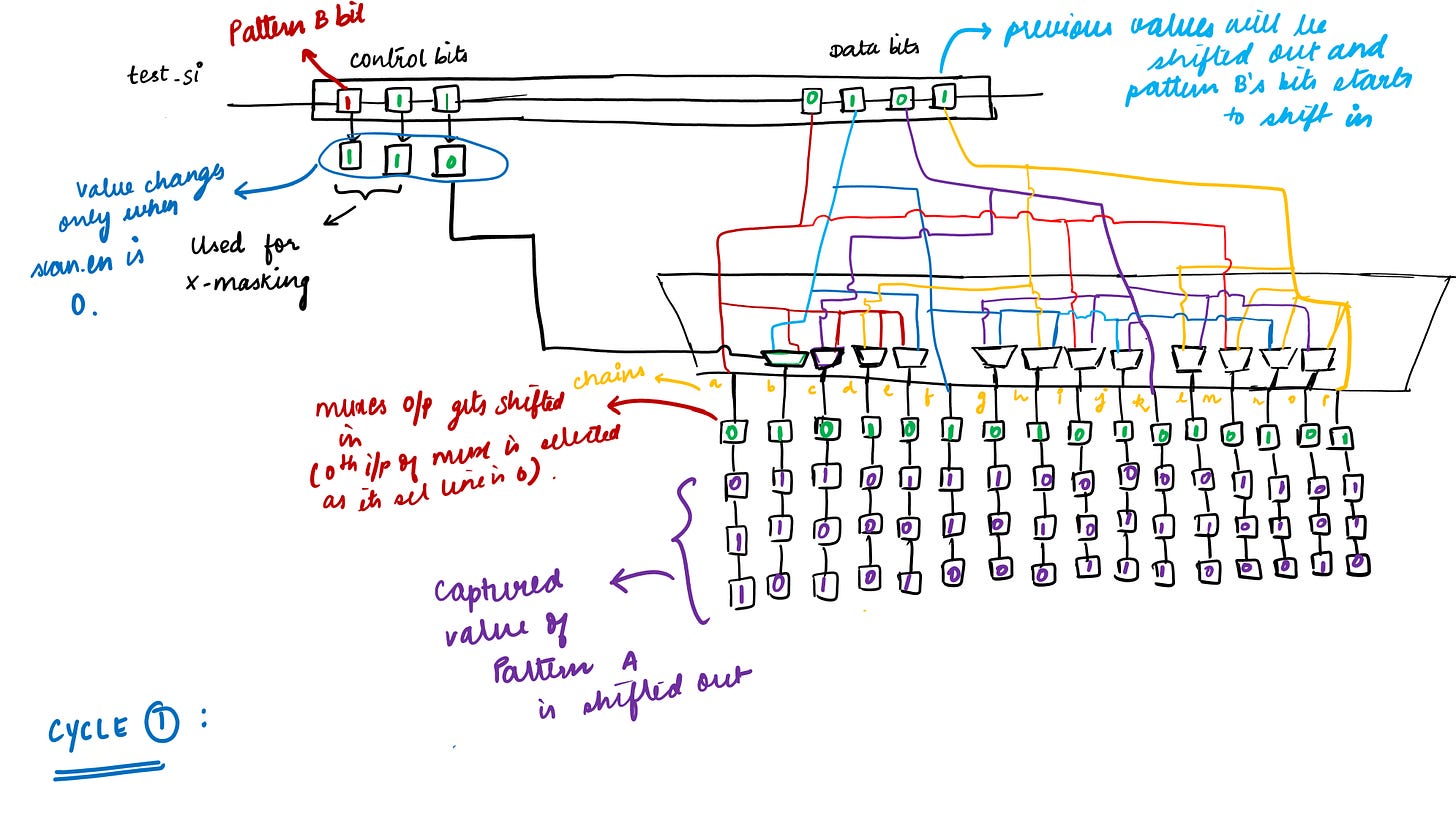 Pattern B bit
test-si
control bits
Data bits
previous values will be
shifted out and
pattern B's bits starts
to shift in
1 1 1
0 1 0 1
1 1 0
value changes
only when
scan.en is
0.
Used for
X-masking
chains
a b c d e f g h i j k l m n o p
muxes O/p gets shifted
in
(0th i/p of mux is selected
as its sel line is 0).
0 1 0 1 0 1 0 1 0 1 0 1 0 1 0 1
0 1 1 0 1 1 1 0 0 0 0 0 1 1 0 1
1 1 0 0 0 1 0 1 0 1 1 1 0 1 0 1
1 0 1 0 1 0 0 0 1 1 1 0 0 0 1 0
Captured
value of
Pattern A
is shifted out
CYCLE 1 :